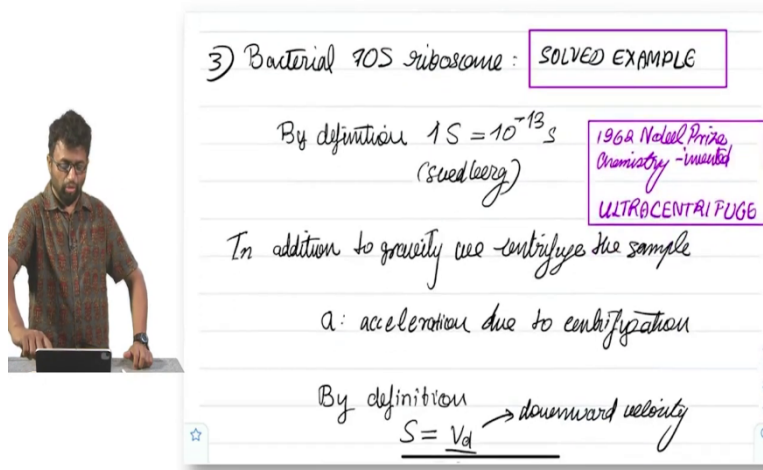 3) Bacterial 70S ribosome : SOLVED EXAMPLE
By defintion 1S = 10⁻¹³ s
(suedberg)
1962 Nobel Prize
Chemistry - invented
ULTRACENTRIFUGE
In addition to gravity we centrifuge the sample
a : acceleration due to centrifugation
By definition
S = Vd → downward velocity